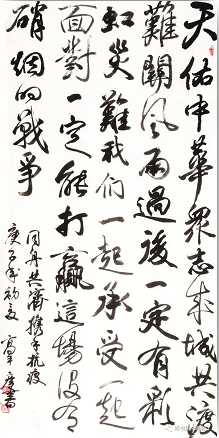 天佑中華眾志成城共渡
難關風雨過後一定有彩
虹災難我們一起承受一起
面對一定能打贏這場沒有
硝烟的戰爭
同舟共濟攜手抗疫
庚子年初夏